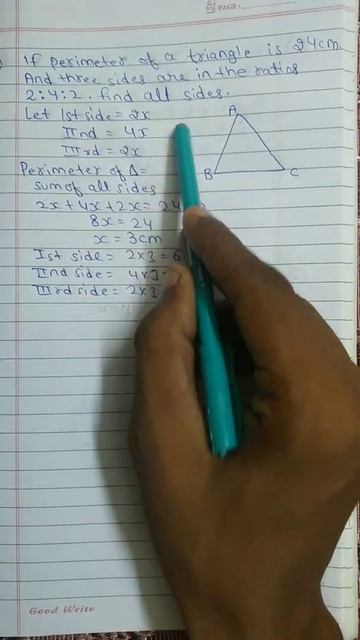 PAGE:
If perimeter of a triangle is 24cm
And three sides are in the ratios
2:4:2. find all sides.
Let Ist side = 2x
IInd = 4x
IIIrd = 2x
A
B
C
Perimeter of Δ=
sum of all sides
2x+4x+2x= 24
8x = 24
x = 3cm
Ist side = 2x3 = 6
IInd side = 4x3=
IIIrd side = 2x3
Good Write